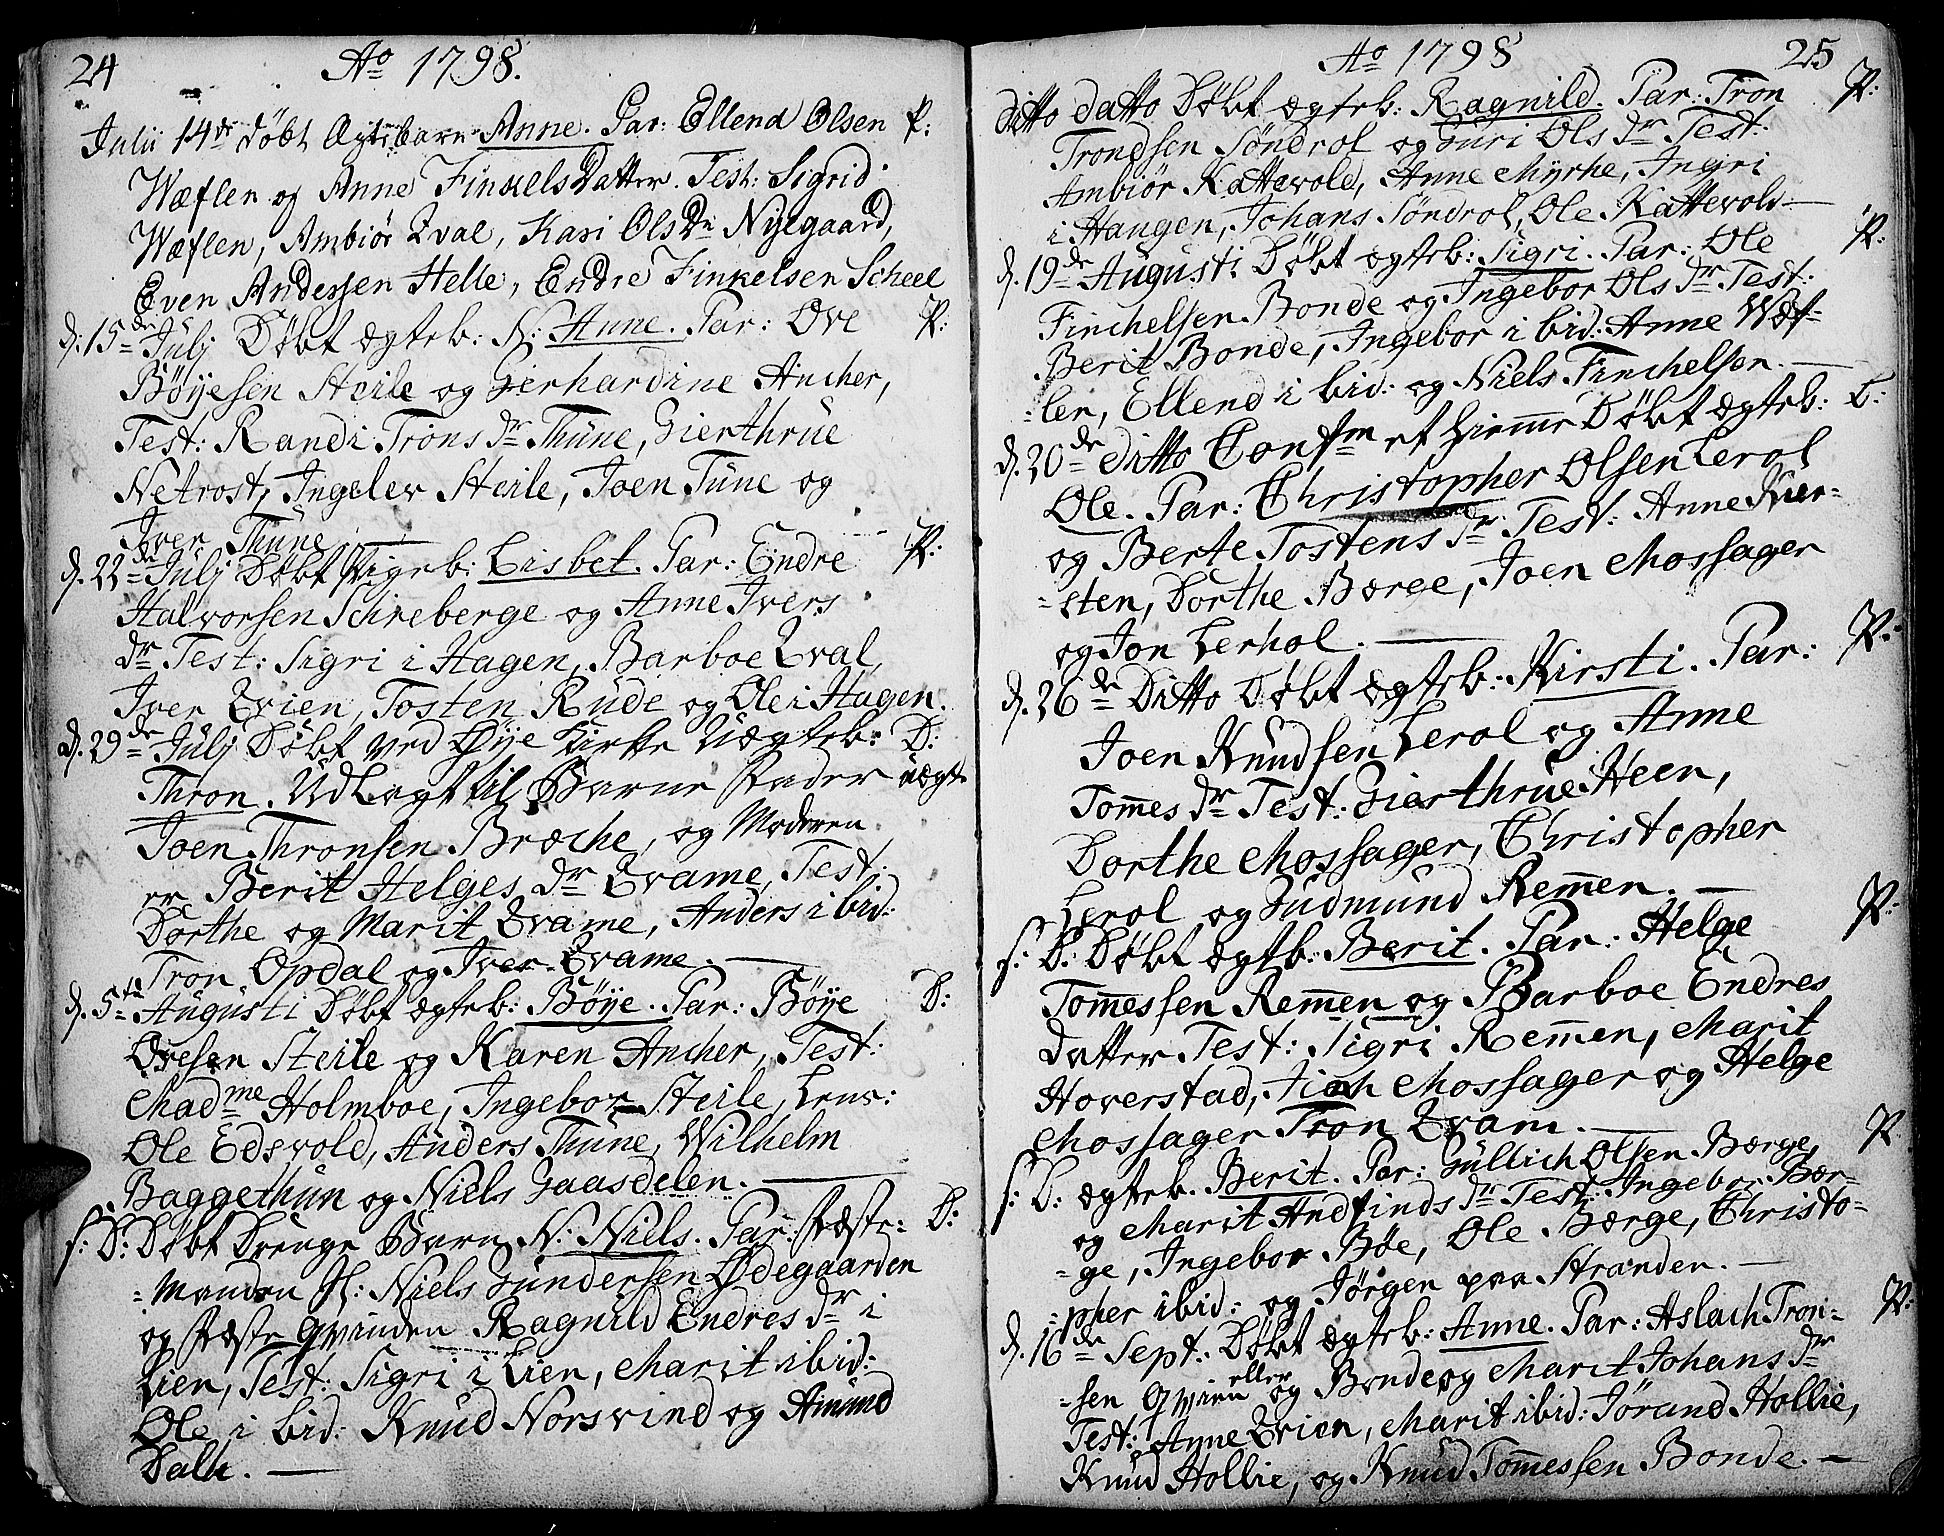 24 Ao 1798.
Julii 14de døbt Ægtebarn Anne. Par: Ellend Olsen P:
Wæflen og Anne Finkels Datter. Test: Sigrid
Wæflen, Ambiør Qval, Kari Ols Dr Nylgaard,
Even Andersen Helle, Endre Finkelsen Scheel
d. 15de Julj Døbt ægteb: N: Anne. Par: Ove P:
Bøyesen Steile og Gerhardine Ancher,
Test: Randi Trons dr Thune, Gierthrue
Netrost, Ingelev Steile, Joen Tüne og
Iver Thüne.
d. 22de Julj Døbt Pigeb: Lisbet. Par: Endre P:
Halvorsen Schreberge og Anne Ivers
dr Test: Sigri i Hagen, Barboe Qval,
Iver Qvien, Tosten Rude og Ole i Hagen.
d. 29de Julj Døbt ved Øye Kirke Uægteb: D:
Thron. Udlagt til Barne Fader uægt
Joen Thronsen Bræche, og Moderen
er Berit Helges dr Qvame, Test:
Dorthe og Marit Qvame, Anders ibid:
Tron Opdal og Iver Qvame.
d. 5te Augusti Døbt ægteb: Bøye. Par: Bøye D:
Ovesen Steile og Karen Ancher, Test:
Madme Holmboe, Ingebor Steile, Lens:
Ole Edsvold, Anders Thune, Wilhelm
Baggethun og Niels Gaasdelen.
s: D: Døbt Drenge Barn N: Niels. Par: Fæste= D:
=manden Niels Gundersen Ødegaarden
og Fæste Qvinden Ragnild Endres dr i
Lien, Test: Sigri i Lien, Marit ibid:
Ole i bid: Knud Norsvind og Amund
Dalh.
Ao 1798 25
Ditto datto Døbt ægteb: Ragnild. Par: Tron P:
Trondsen Søndrol og Guri Ols dr Test:
Ambiør Kattevold, Anne Myrhe, Ingri
i Haugen, Johans Søndrol, Ole Kattevold
d. 19de Augusti Døbt ægteb: Sigri. Par: Ole P:
Finchelsen Bonde og Ingebor Ols dr Test:
Berit Bonde, Ingebor i bid: Anne Wæf-
-len, Ellend i bid: og Niels Finchelsen.
d. 20de ditto Confm et hiemme Døbt ægteb: D:
Ole. Par: Christopher Olsen Lerol
og Berte Tostens dr Test: Anne Kier-
-sten, Dorthe Børge, Joen Mossager
og Jon Lerhol.
d. 26de Ditto Døbt ægteb: Kirsti. Par: P:
Joen Knudsen Lerol og Anne
Tom̄es dr Test: Gierthrue Heen,
Dorthe Mossager, Christopher
Lerol og Gudmund Rem̄en.
s: D: Døbt ægtb: Berit. Par: Helge P:
Tom̄essen Rem̄en og Barboe Endres
Datter Test: Sigri Rem̄en, Marit
Hoverstad, Mossager og Helge
Mossager Tron Qvam.
s: D: ægteb. Berit. Par: Gullich Olsen Børge, P
og Marit Andfinds dr Test: Ingebor Bør-
-ge, Ingebor Bøe, Ole Børge, Christo-
-pher ibid: og Jørgen paa Stranden.
d. 16de Sept: Døbt ægteb: Anne. Par: Aslach Tron- P:
-sen Qvien eller og Bonde og Marit Johans dr
Test: Anne Qvien, Marit ibid: Jørand Hollie,
Knud Hollie, og Knud Tom̄essen Bonde.